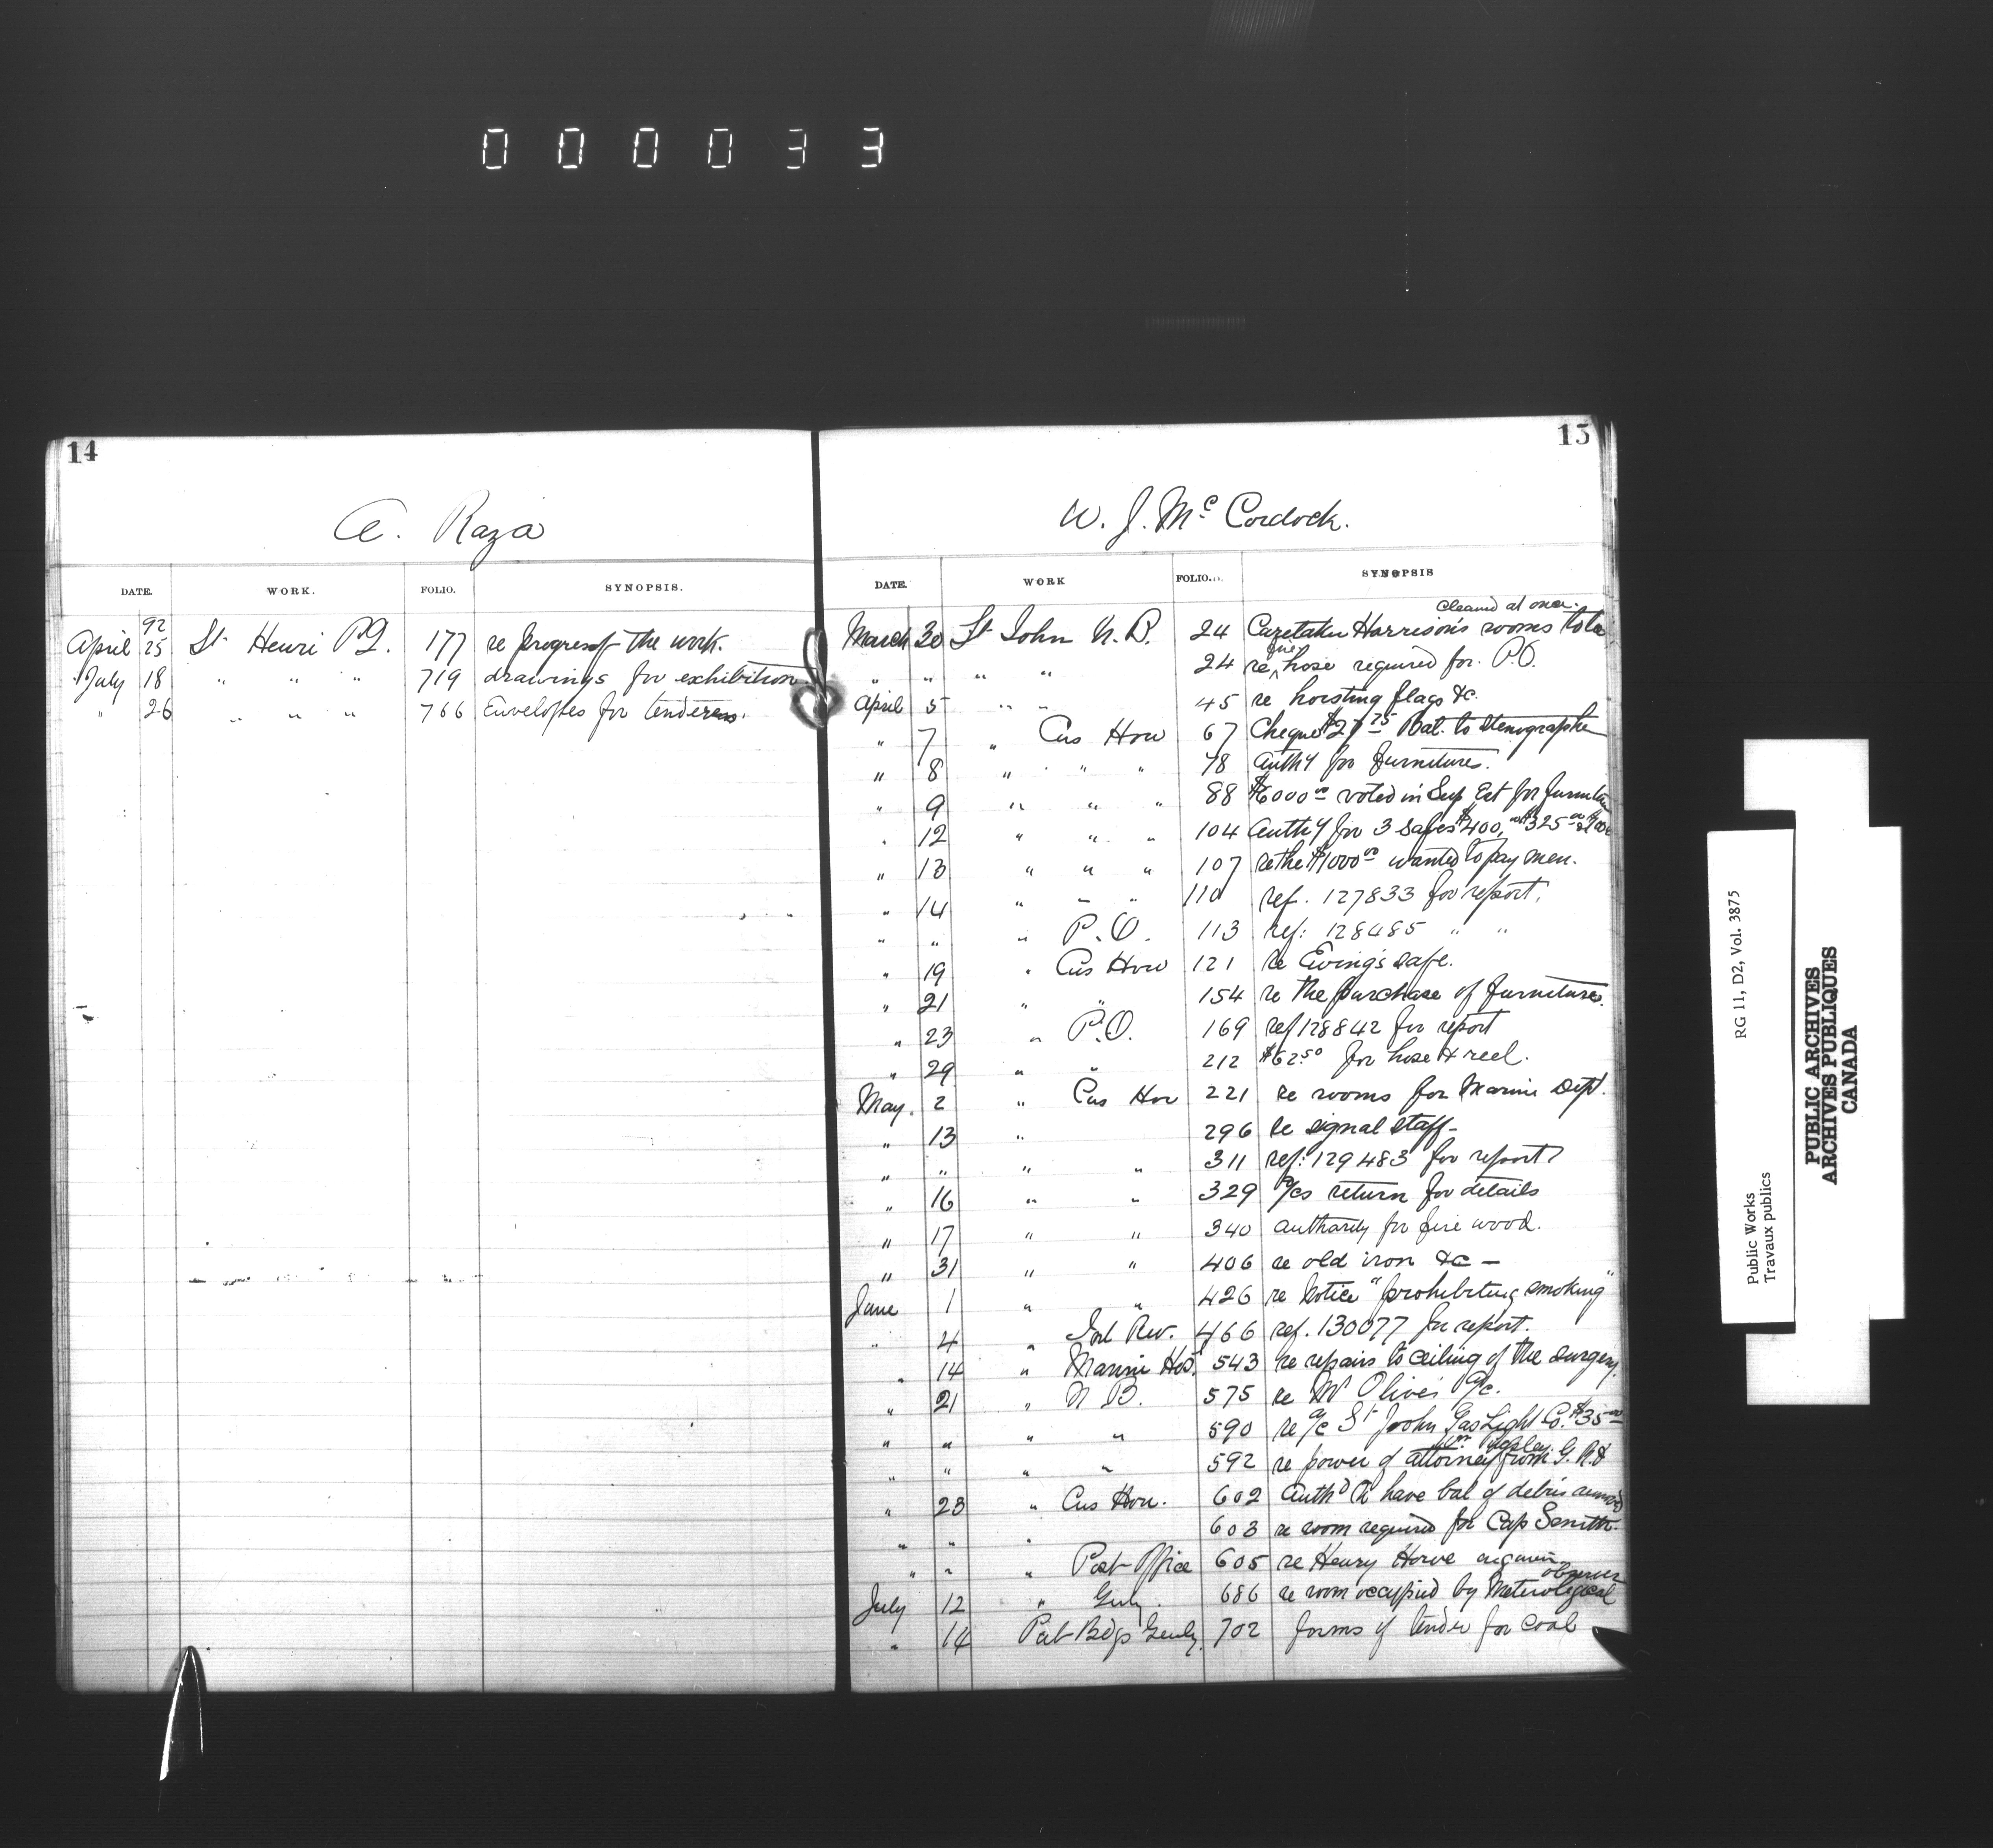 000033
14
A. Raza
DATE. WORK. FOLIO. SYNOPSIS.
92
April 25 St Henri P.O. 177 re progress of the work.
July 18 " " " 719 drawings for exhibition.
" 26 " " " 766 Envelopes for tenderers.
15
W. J. McCordock.
DATE. WORK FOLIO. SYNOPSIS
cleaned at once.
March 30 St John N. B. 24 Caretaker Harrison's rooms to be
" " " " 24 re fire hose required for P.O.
April 5 " " 45 re hoisting flags &c.
" 7 " Cus Hou 67 Cheque Bal. to Stenographer
" 8 " " " 78 Authy for furnitures.
" 9 " " " 88 $6000.00 voted in Sup Est for furniture
" 12 " " " 104 Authy for 3 safes $400.00 $325.00
" 13 " " " 107 re the $1000.00 wanted to pay men.
" 14 " " " 110 ref. 127833 for report.
" " " P.O. 113 ref: 128485 " "
" 19 " Cus Hou 121 re Ewing's safe.
" 21 " " 154 re the purchase of furniture.
" 23 " P.O. 169 ref 128842 for report
" 29 " " 212 $62.50 for hose & reel.
May. 2 " Cus Hou 221 re rooms for Marine Dept.
" 13 " 296 re signal staff-
" " " " 311 ref: 129483 for report
" 16 " " 329 a/cs return for details
" 17 " " 340 authority for fire wood.
" 31 " " 406 re old iron &c —
June 1 " " 426 re Notice "prohibiting smoking"
" 4 " Inl Rev. 466 ref. 130077 for report.
" 14 " Marine Hos. 543 re repairs to ceiling of the surgery.
" 21 " N B. 575 re Mr Olive's a/c.
" " " " 590 re a/c St John Gas Light Co. $35.00
" " " " 592 re power of attorney from G. R.
" 23 " Cus Hou. 602 Authd to have bal of debris removed
" " " 603 re room required for Cap Smith.
" " " Post Office 605 re Henry Howe
observer
July 12 " Genly. 686 re room occupied by Meterological
" 14 Pub Bdgs Genly. 702 forms of tender for coal
RG 11, D2, Vol. 3875
Public Works
Travaux publics
PUBLIC ARCHIVES
ARCHIVES PUBLIQUES
CANADA